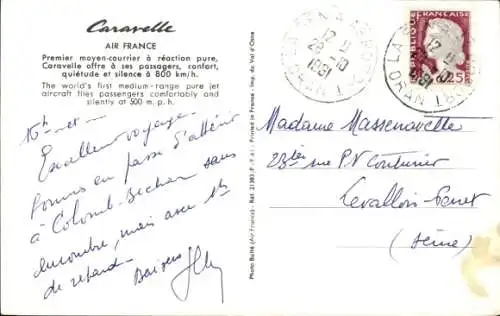 Caravelle
AIR FRANCE
Premier moyen-courrier à réaction pure,
Caravelle offre à ses passagers, confort,
quiétude et silence à 800 km/h.
The world's first medium-range pure jet
aircraft flies passengers comfortably and
silently at 500 m. p. h.
16h
Excellent voyage.
Sommes en passe d'atterrir
à Colomb-Bechar sans
encombre, mais avec 1h
de retard. Baisers
Photo Balté (Air France) - Réf. 21.
Printed in France - Imp. du Val d'Oise
REPUBLIQUE FRANÇAISE
0,25
12 H
28-10
1961
ORAN
LA
12 H
1961
ORAN
Madame Massenavette
23 ter rue P.V. Couturier
Levallois-Perret
(Seine)